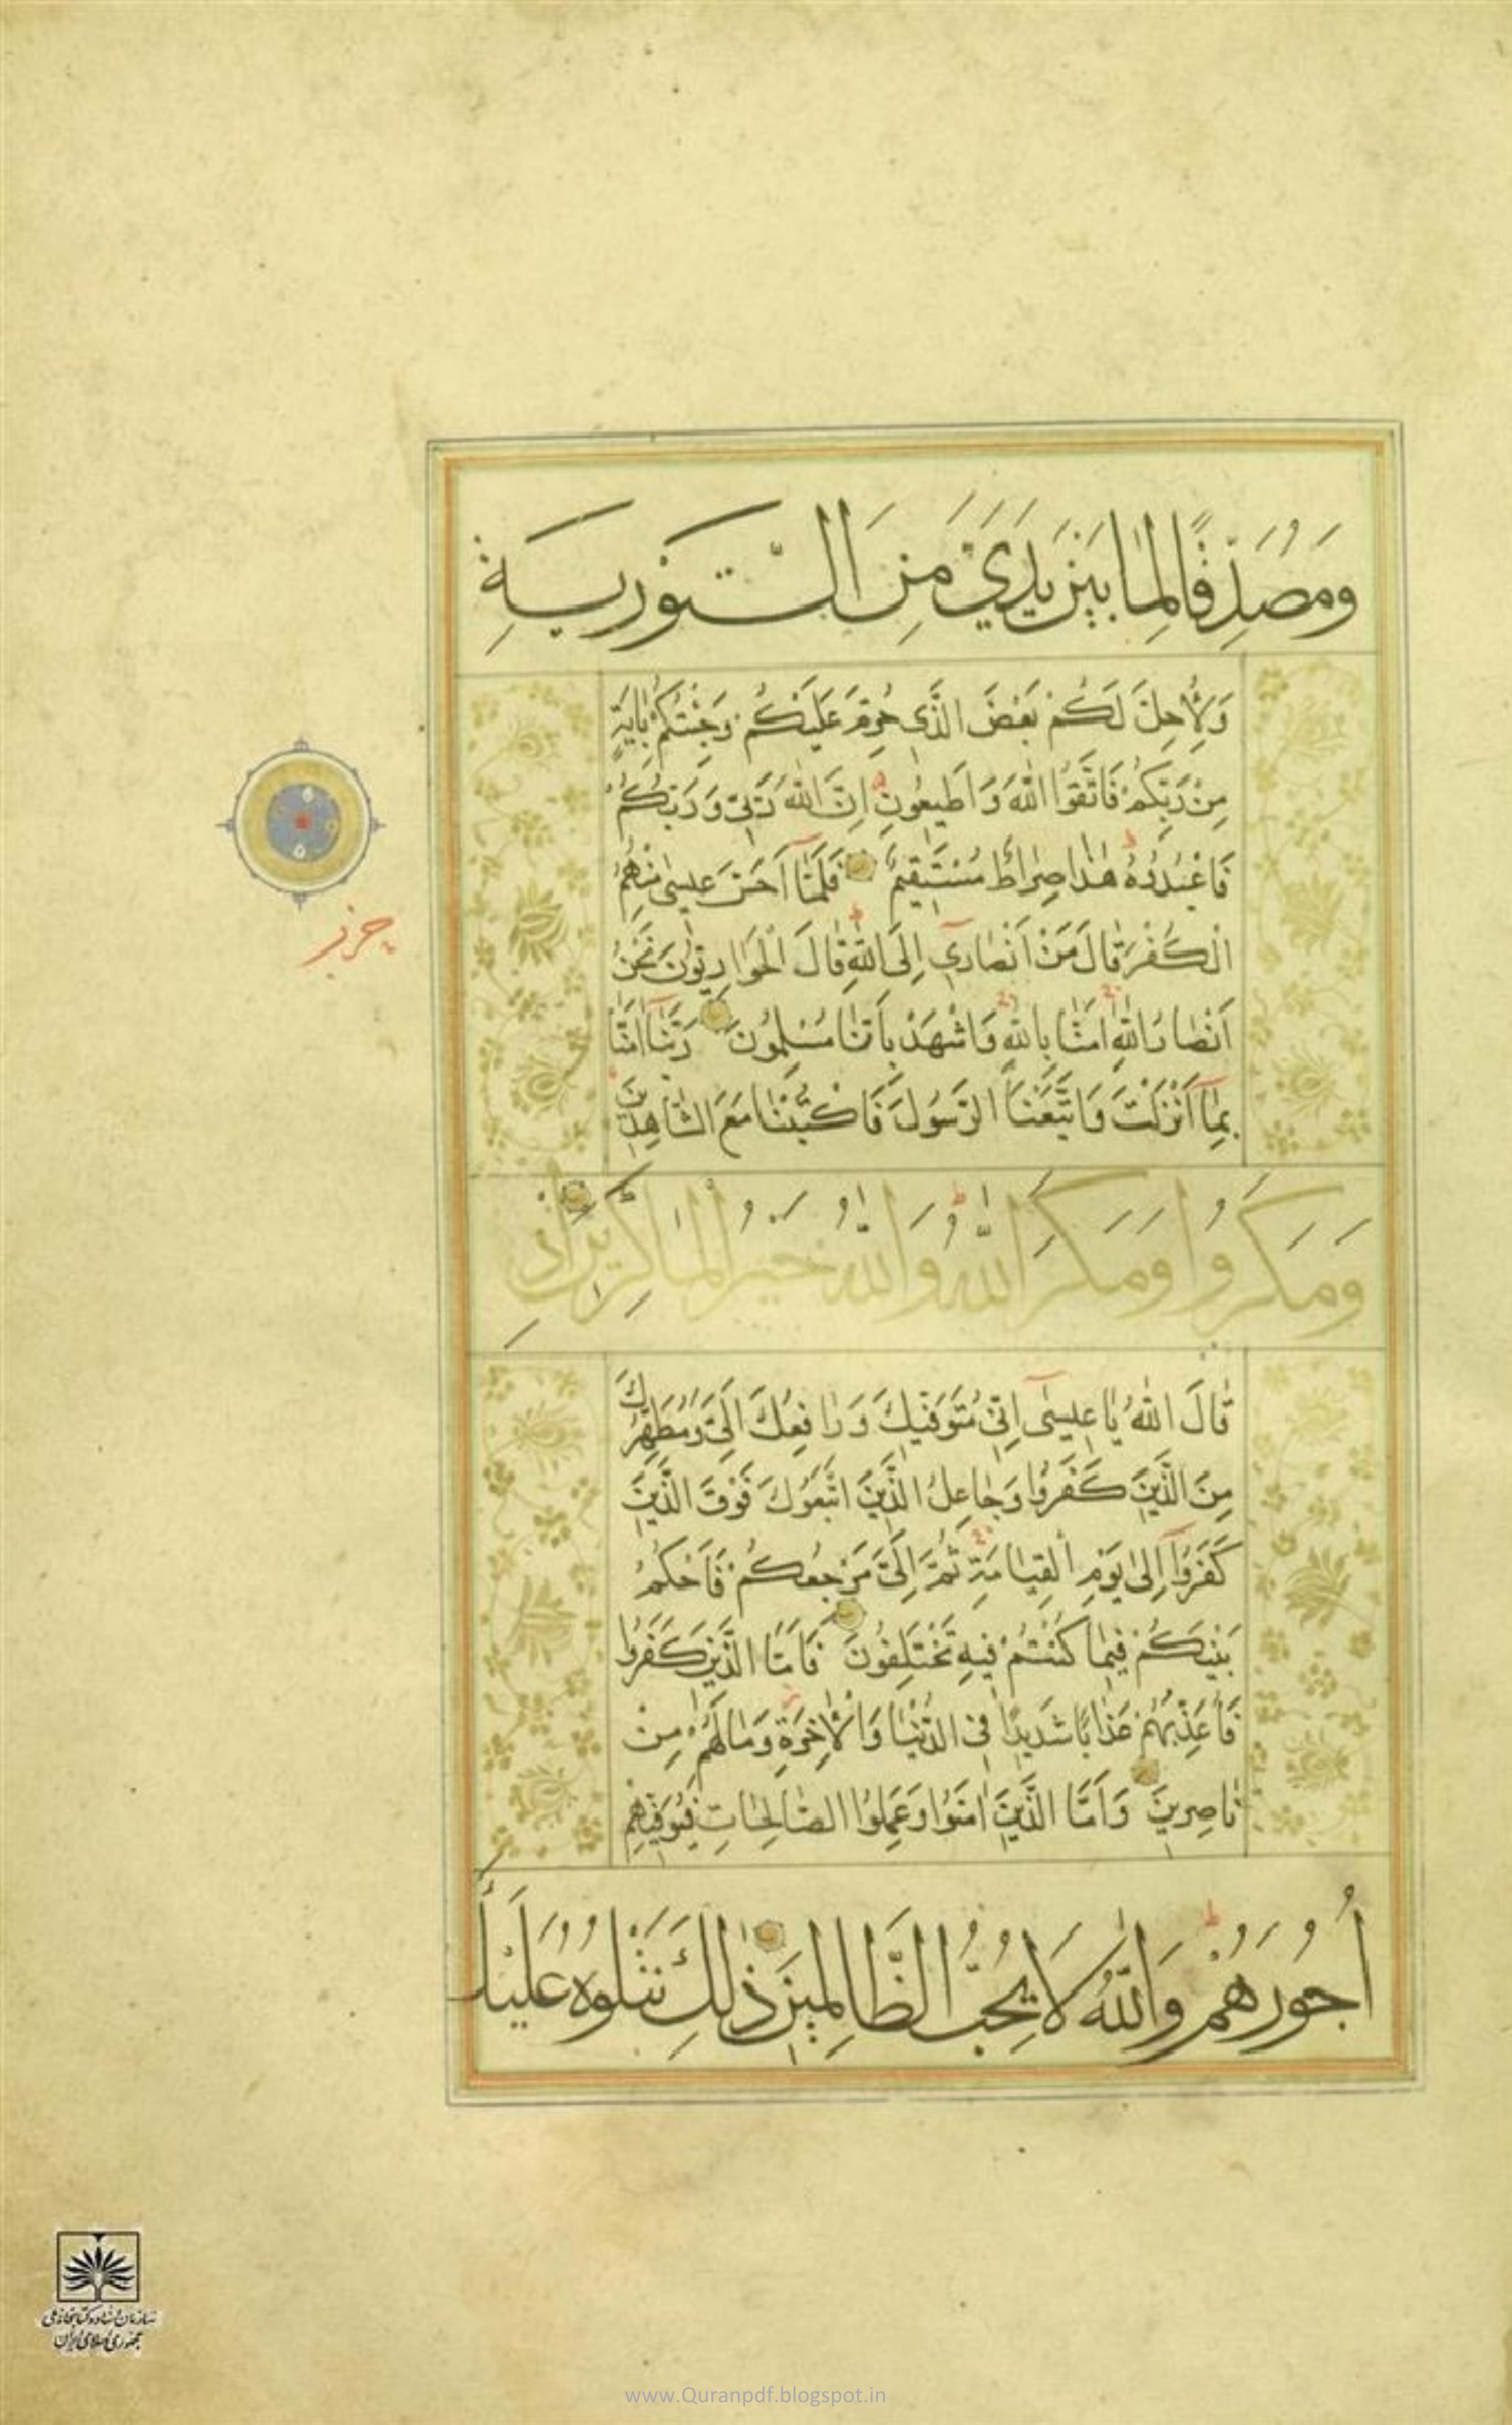 وَمُصَدِّقًا لِمَا بَيْنَ يَدَيَّ مِنَ التَّوْرٰيةِ
وَلِأُحِلَّ لَكُمْ بَعْضَ الَّذِي حُرِّمَ عَلَيْكُمْ وَجِئْتُكُمْ بِاٰيَةٍ
مِنْ رَبِّكُمْ فَاتَّقُوا اللّٰهَ وَاَطِيعُونِ اِنَّ اللّٰهَ رَبِّي وَرَبُّكُمْ
فَاعْبُدُوهُ هٰذَا صِرَاطٌ مُسْتَقِيمٌ فَلَمَّا اَحَسَّ عِيسٰى مِنْهُمُ
الْكُفْرَ قَالَ مَنْ اَنْصَارِي اِلَى اللّٰهِ قَالَ الْحَوَارِيُّونَ نَحْنُ
اَنْصَارُ اللّٰهِ اٰمَنَّا بِاللّٰهِ وَاشْهَدْ بِاَنَّا مُسْلِمُونَ رَبَّنَا اٰمَنَّا
بِمَا اَنْزَلْتَ وَاتَّبَعْنَا الرَّسُولَ فَاكْتُبْنَا مَعَ الشَّاهِدِينَ
حزب
وَمَكَرُوا وَمَكَرَ اللّٰهُ وَاللّٰهُ خَيْرُ الْمَاكِرِينَ اِذْ
قَالَ اللّٰهُ يَا عِيسٰى اِنِّي مُتَوَفِّيكَ وَرَافِعُكَ اِلَيَّ وَمُطَهِّرُكَ
مِنَ الَّذِينَ كَفَرُوا وَجَاعِلُ الَّذِينَ اتَّبَعُوكَ فَوْقَ الَّذِينَ
كَفَرُوا اِلٰى يَوْمِ الْقِيَامَةِ ثُمَّ اِلَيَّ مَرْجِعُكُمْ فَاَحْكُمُ
بَيْنَكُمْ فِيمَا كُنْتُمْ فِيهِ تَخْتَلِفُونَ فَاَمَّا الَّذِينَ كَفَرُوا
فَاُعَذِّبُهُمْ عَذَابًا شَدِيدًا فِي الدُّنْيَا وَالْاٰخِرَةِ وَمَا لَهُمْ مِنْ
نَاصِرِينَ وَاَمَّا الَّذِينَ اٰمَنُوا وَعَمِلُوا الصَّالِحَاتِ فَيُوَفِّيهِمْ
اُجُورَهُمْ وَاللّٰهُ لَا يُحِبُّ الظَّالِمِينَ ذٰلِكَ نَتْلُوهُ عَلَيْكَ
سازمان اسناد و کتابخانه ملی
جمهوری اسلامی ایران
www.Quranpdf.blogspot.in